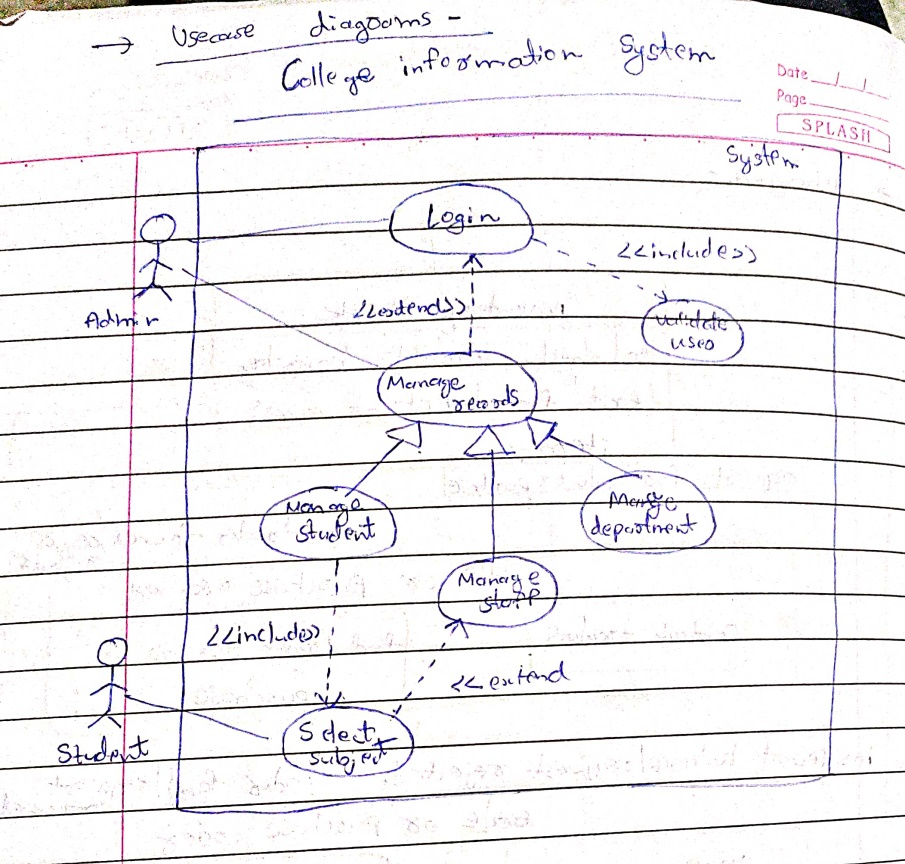 → Usecase diagrams -
College information System
Date __/__/__
Page
SPLASH
System
Login
<<includes>>
Admin
<<extends>>
validate
user
Manage
records
Manage
student
Manage
department
Manage
staff
<<includes>>
<<extend
Student
Select
subject